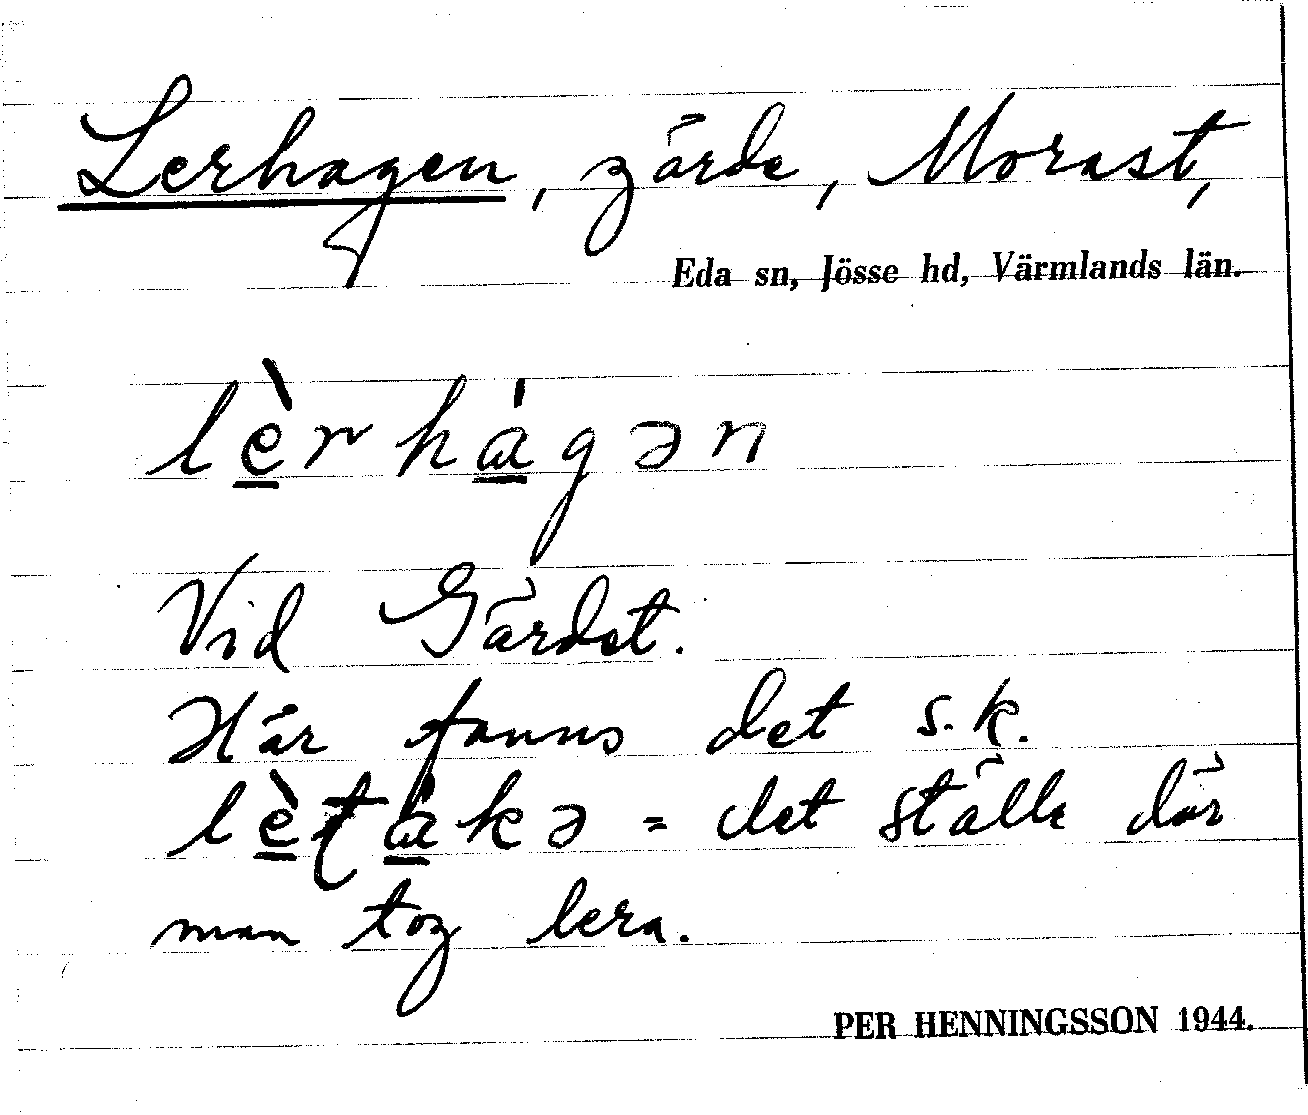 Lerhagen, gärde, Morast,
Eda sn, Jösse hd, Värmlands län.
lèrhágən
Vid Gärdet.
Här fanns det s.k.
lèʈákə = det ställe där
man tog lera.
PER HENNINGSSON 1944.